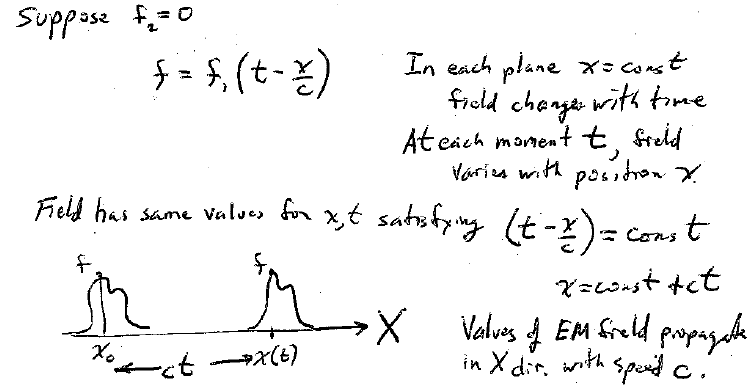 Suppose f₂ = 0
f = f₁ (t - x/c)
In each plane x = const
field changes with time
At each moment t, field
varies with position x.
Field has same values for x,t satisfying (t - x/c) = const
x = const + ct
f f
x₀ ← ct → x(t) X
Values of EM field propagate
in X dir. with speed c.